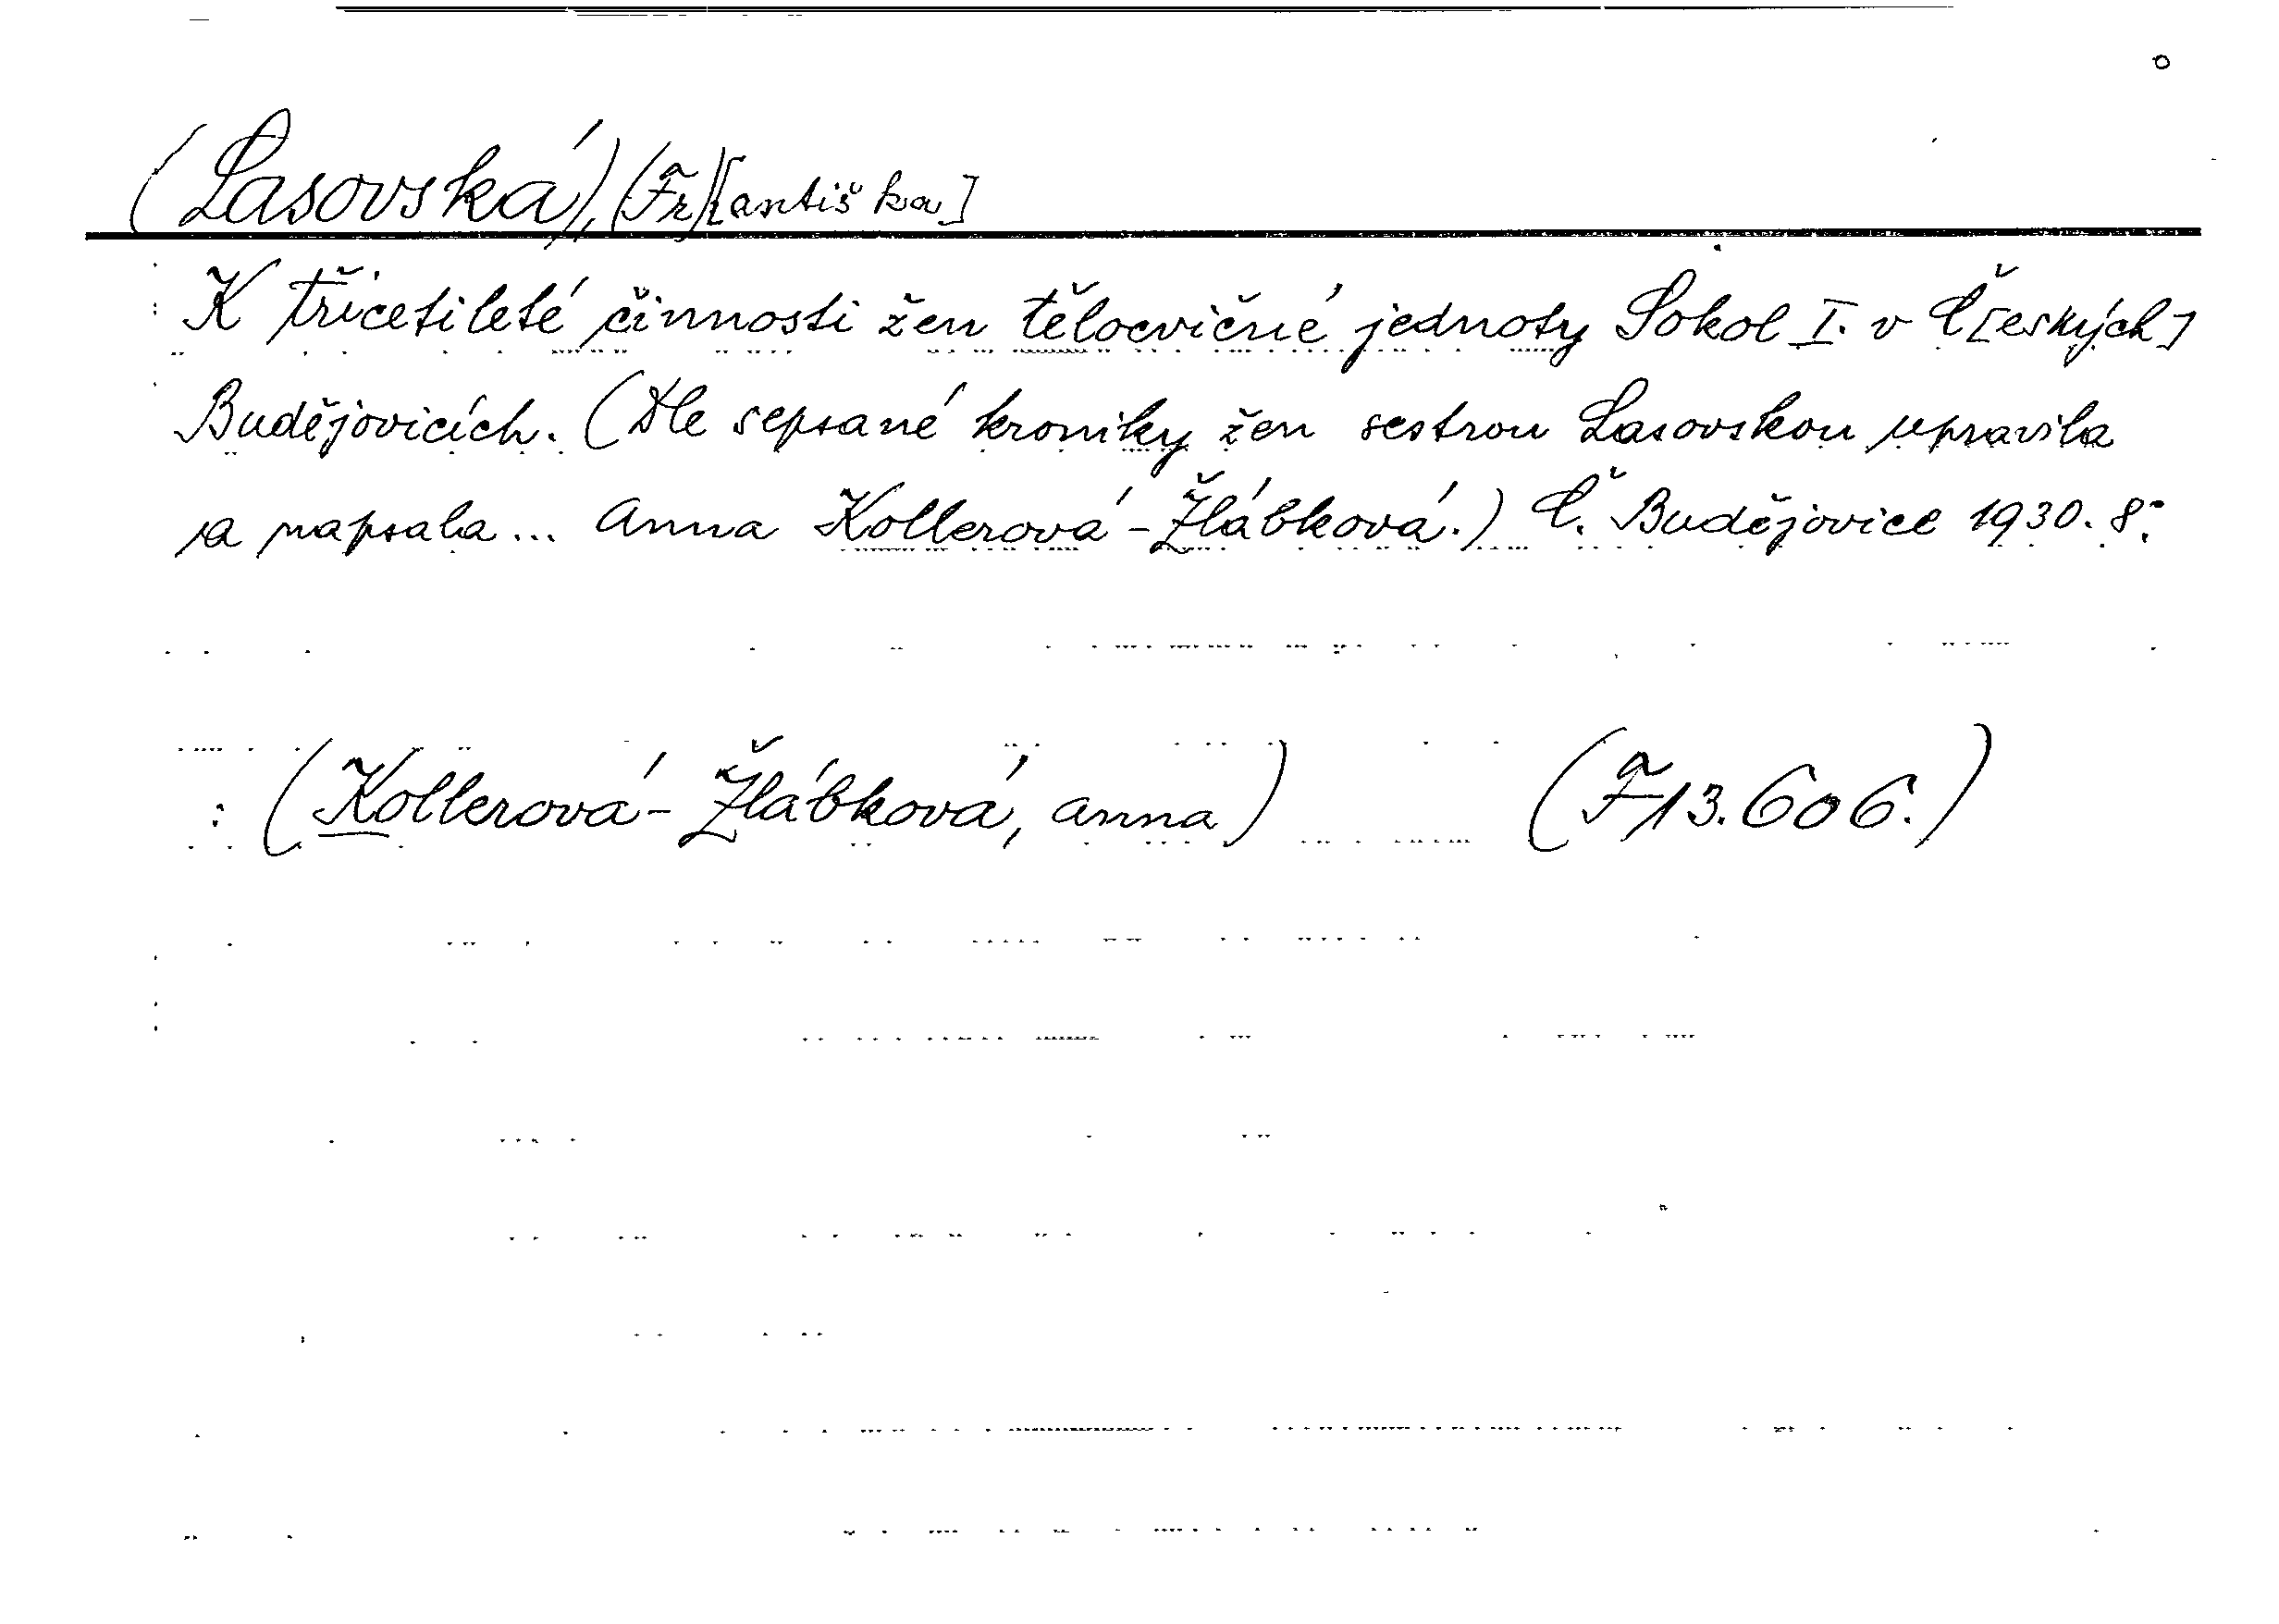 (Lasovská), (Fr)[antiška]
K třicetileté činnosti žen tělocvičné jednoty Sokol I. v Č[eských]
Budějovicích. (Dle sepsané kroniky žen sestrou Lasovskou upravila
a napsala... Anna Kollerová-Žlábková.) Č. Budějovice 1930. 8°.
(Kollerová-Žlábková, Anna) (F13.606.)